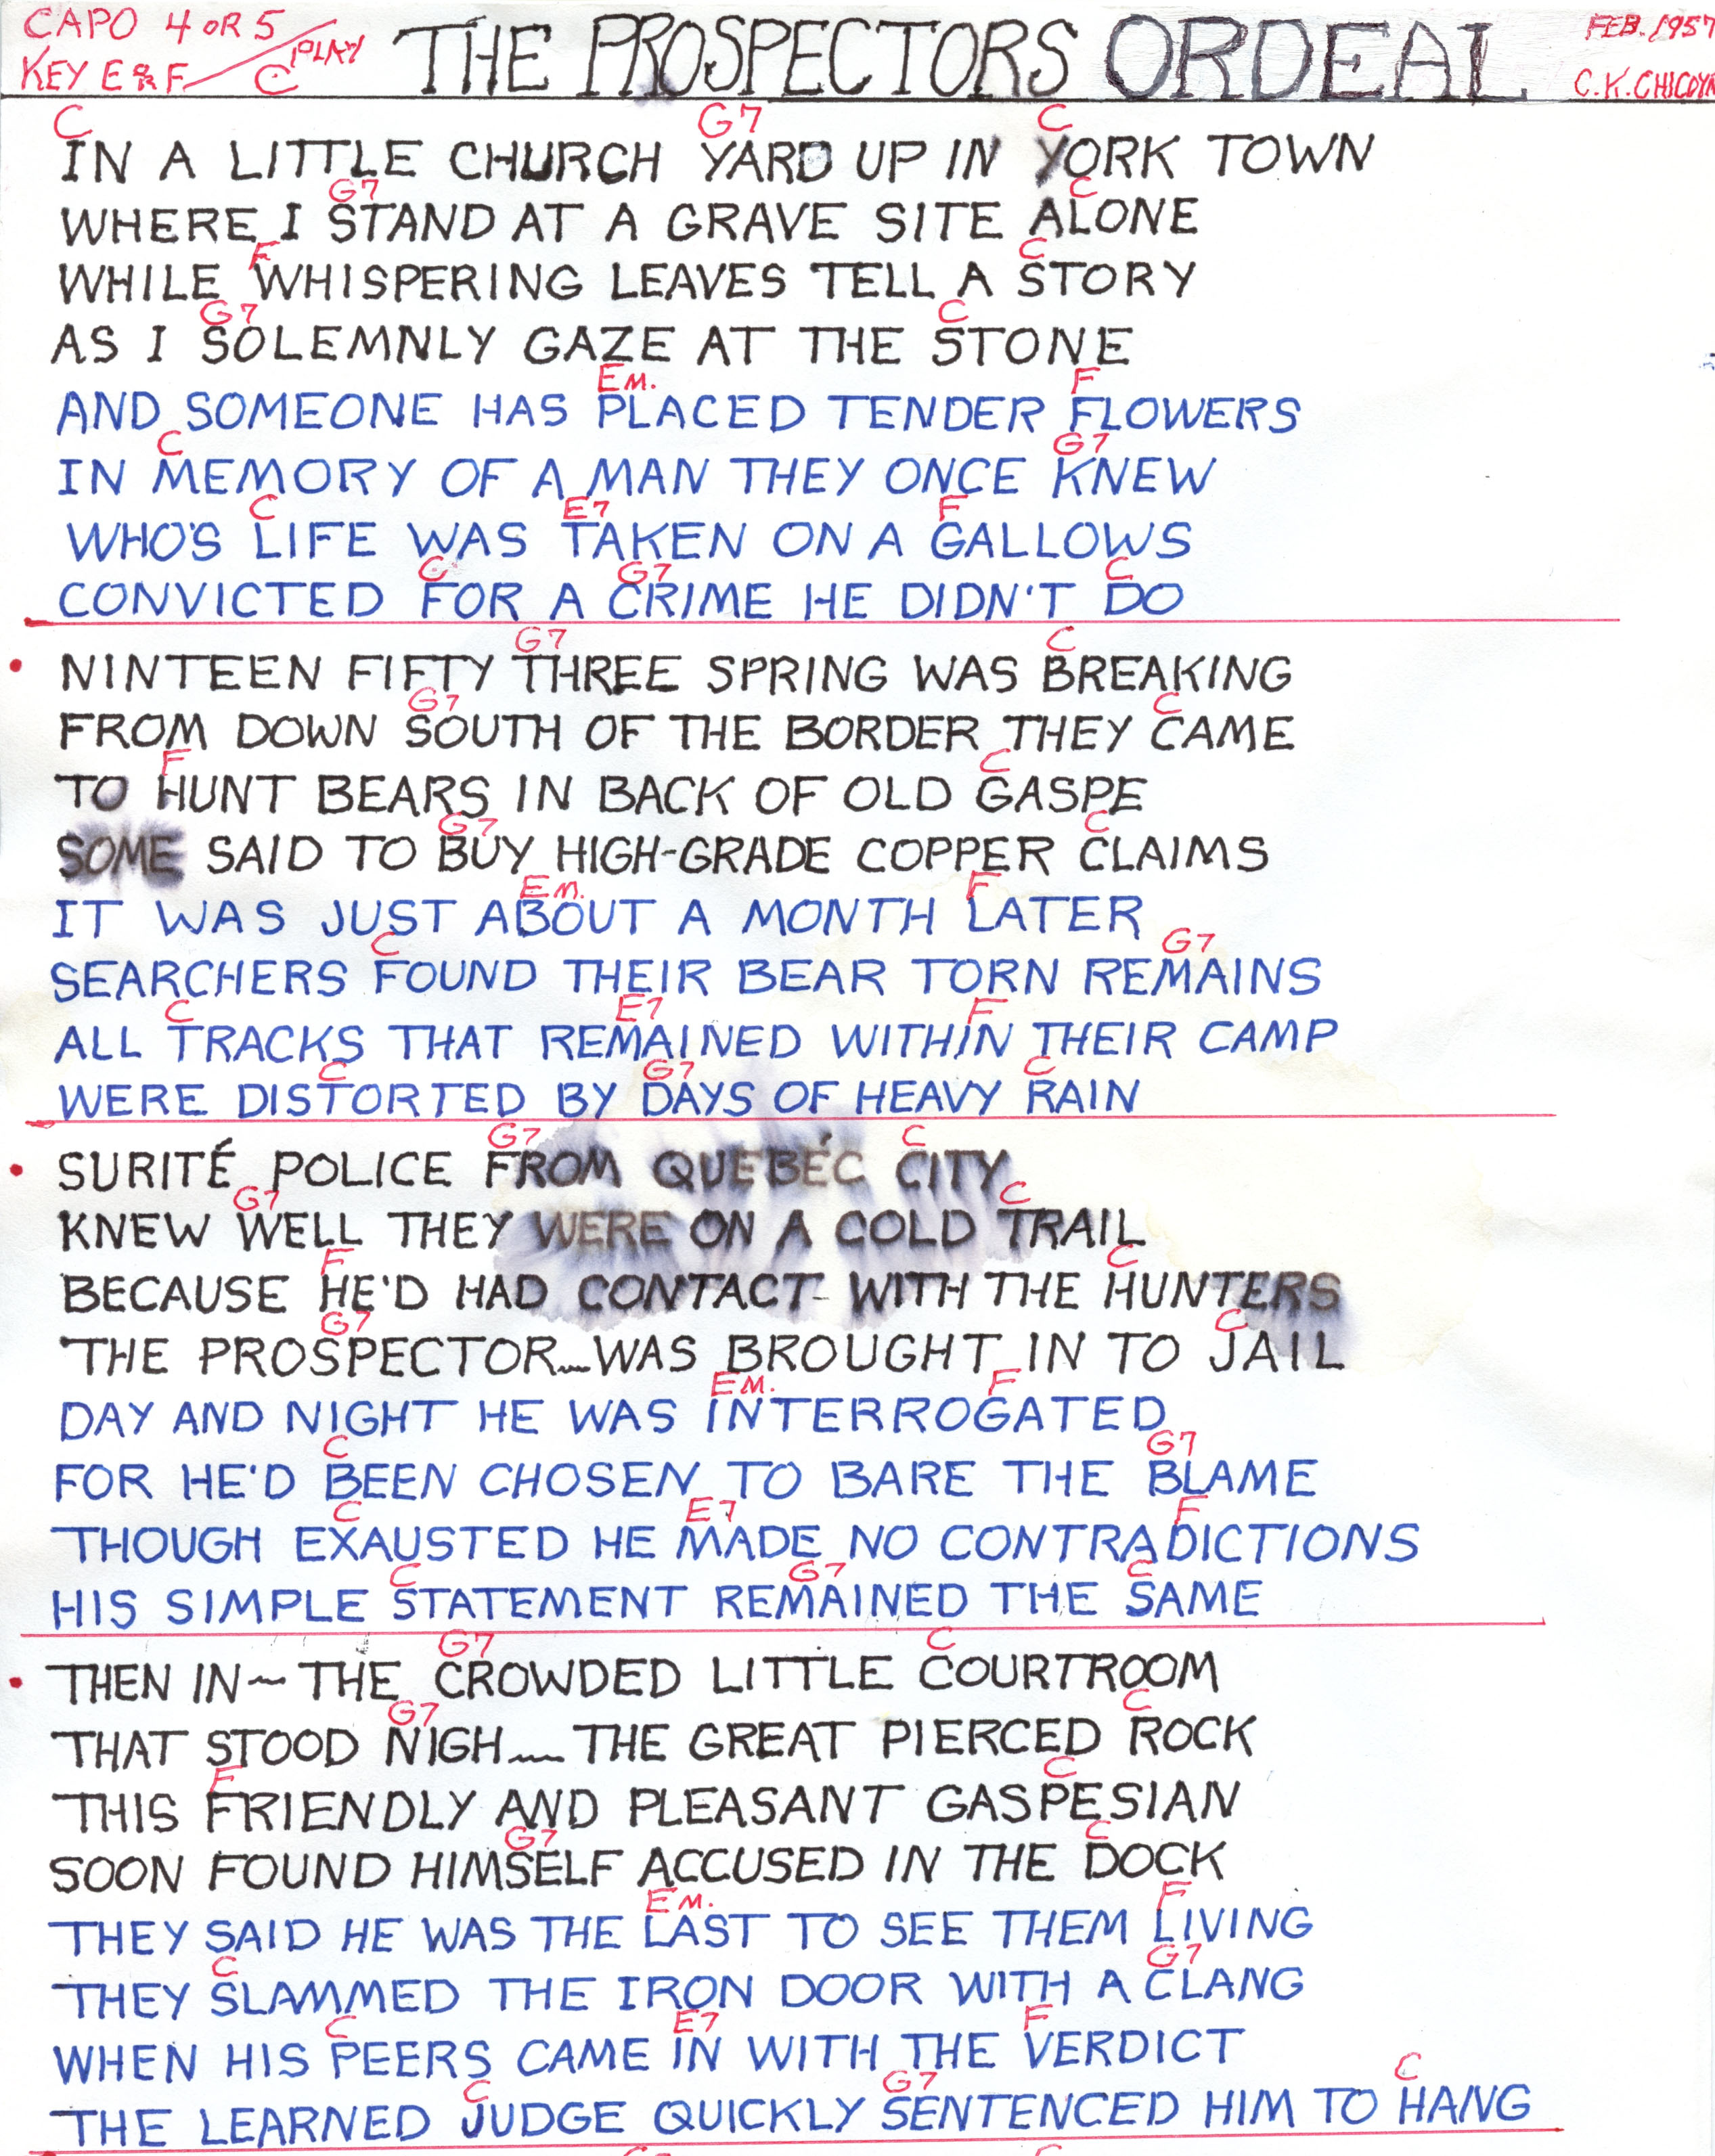 CAPO 4 OR 5
KEY E OR F PLAY C
THE PROSPECTORS ORDEAL
FEB. 1957
C.K. CHICOYN
C G7 C
IN A LITTLE CHURCH YARD UP IN YORK TOWN
G7 C
WHERE I STAND AT A GRAVE SITE ALONE
F C
WHILE WHISPERING LEAVES TELL A STORY
G7 C
AS I SOLEMNLY GAZE AT THE STONE
EM. F
AND SOMEONE HAS PLACED TENDER FLOWERS
C G7
IN MEMORY OF A MAN THEY ONCE KNEW
C E7 F
WHO'S LIFE WAS TAKEN ON A GALLOWS
C G7 C
CONVICTED FOR A CRIME HE DIDN'T DO
G7 C
• NINTEEN FIFTY THREE SPRING WAS BREAKING
G7 C
FROM DOWN SOUTH OF THE BORDER THEY CAME
F C
TO HUNT BEARS IN BACK OF OLD GASPE
G7 C
SOME SAID TO BUY HIGH-GRADE COPPER CLAIMS
EM. F
IT WAS JUST ABOUT A MONTH LATER
C G7
SEARCHERS FOUND THEIR BEAR TORN REMAINS
C E7 F
ALL TRACKS THAT REMAINED WITHIN THEIR CAMP
C G7 C
WERE DISTORTED BY DAYS OF HEAVY RAIN
G7 C
• SURITÉ POLICE FROM QUEBÉC CITY
G7 C
KNEW WELL THEY WERE ON A COLD TRAIL
F C
BECAUSE HE'D HAD CONTACT WITH THE HUNTERS
G7 C
THE PROSPECTOR~WAS BROUGHT IN TO JAIL
EM. F
DAY AND NIGHT HE WAS INTERROGATED
C G7
FOR HE'D BEEN CHOSEN TO BARE THE BLAME
C E7 F
THOUGH EXAUSTED HE MADE NO CONTRADICTIONS
C G7 C
HIS SIMPLE STATEMENT REMAINED THE SAME
G7 C
• THEN IN~THE CROWDED LITTLE COURTROOM
G7 C
THAT STOOD NIGH~THE GREAT PIERCED ROCK
F C
THIS FRIENDLY AND PLEASANT GASPESIAN
G7 C
SOON FOUND HIMSELF ACCUSED IN THE DOCK
EM. F
THEY SAID HE WAS THE LAST TO SEE THEM LIVING
C G7
THEY SLAMMED THE IRON DOOR WITH A CLANG
C E7 F
WHEN HIS PEERS CAME IN WITH THE VERDICT
C G7 C
THE LEARNED JUDGE QUICKLY SENTENCED HIM TO HANG